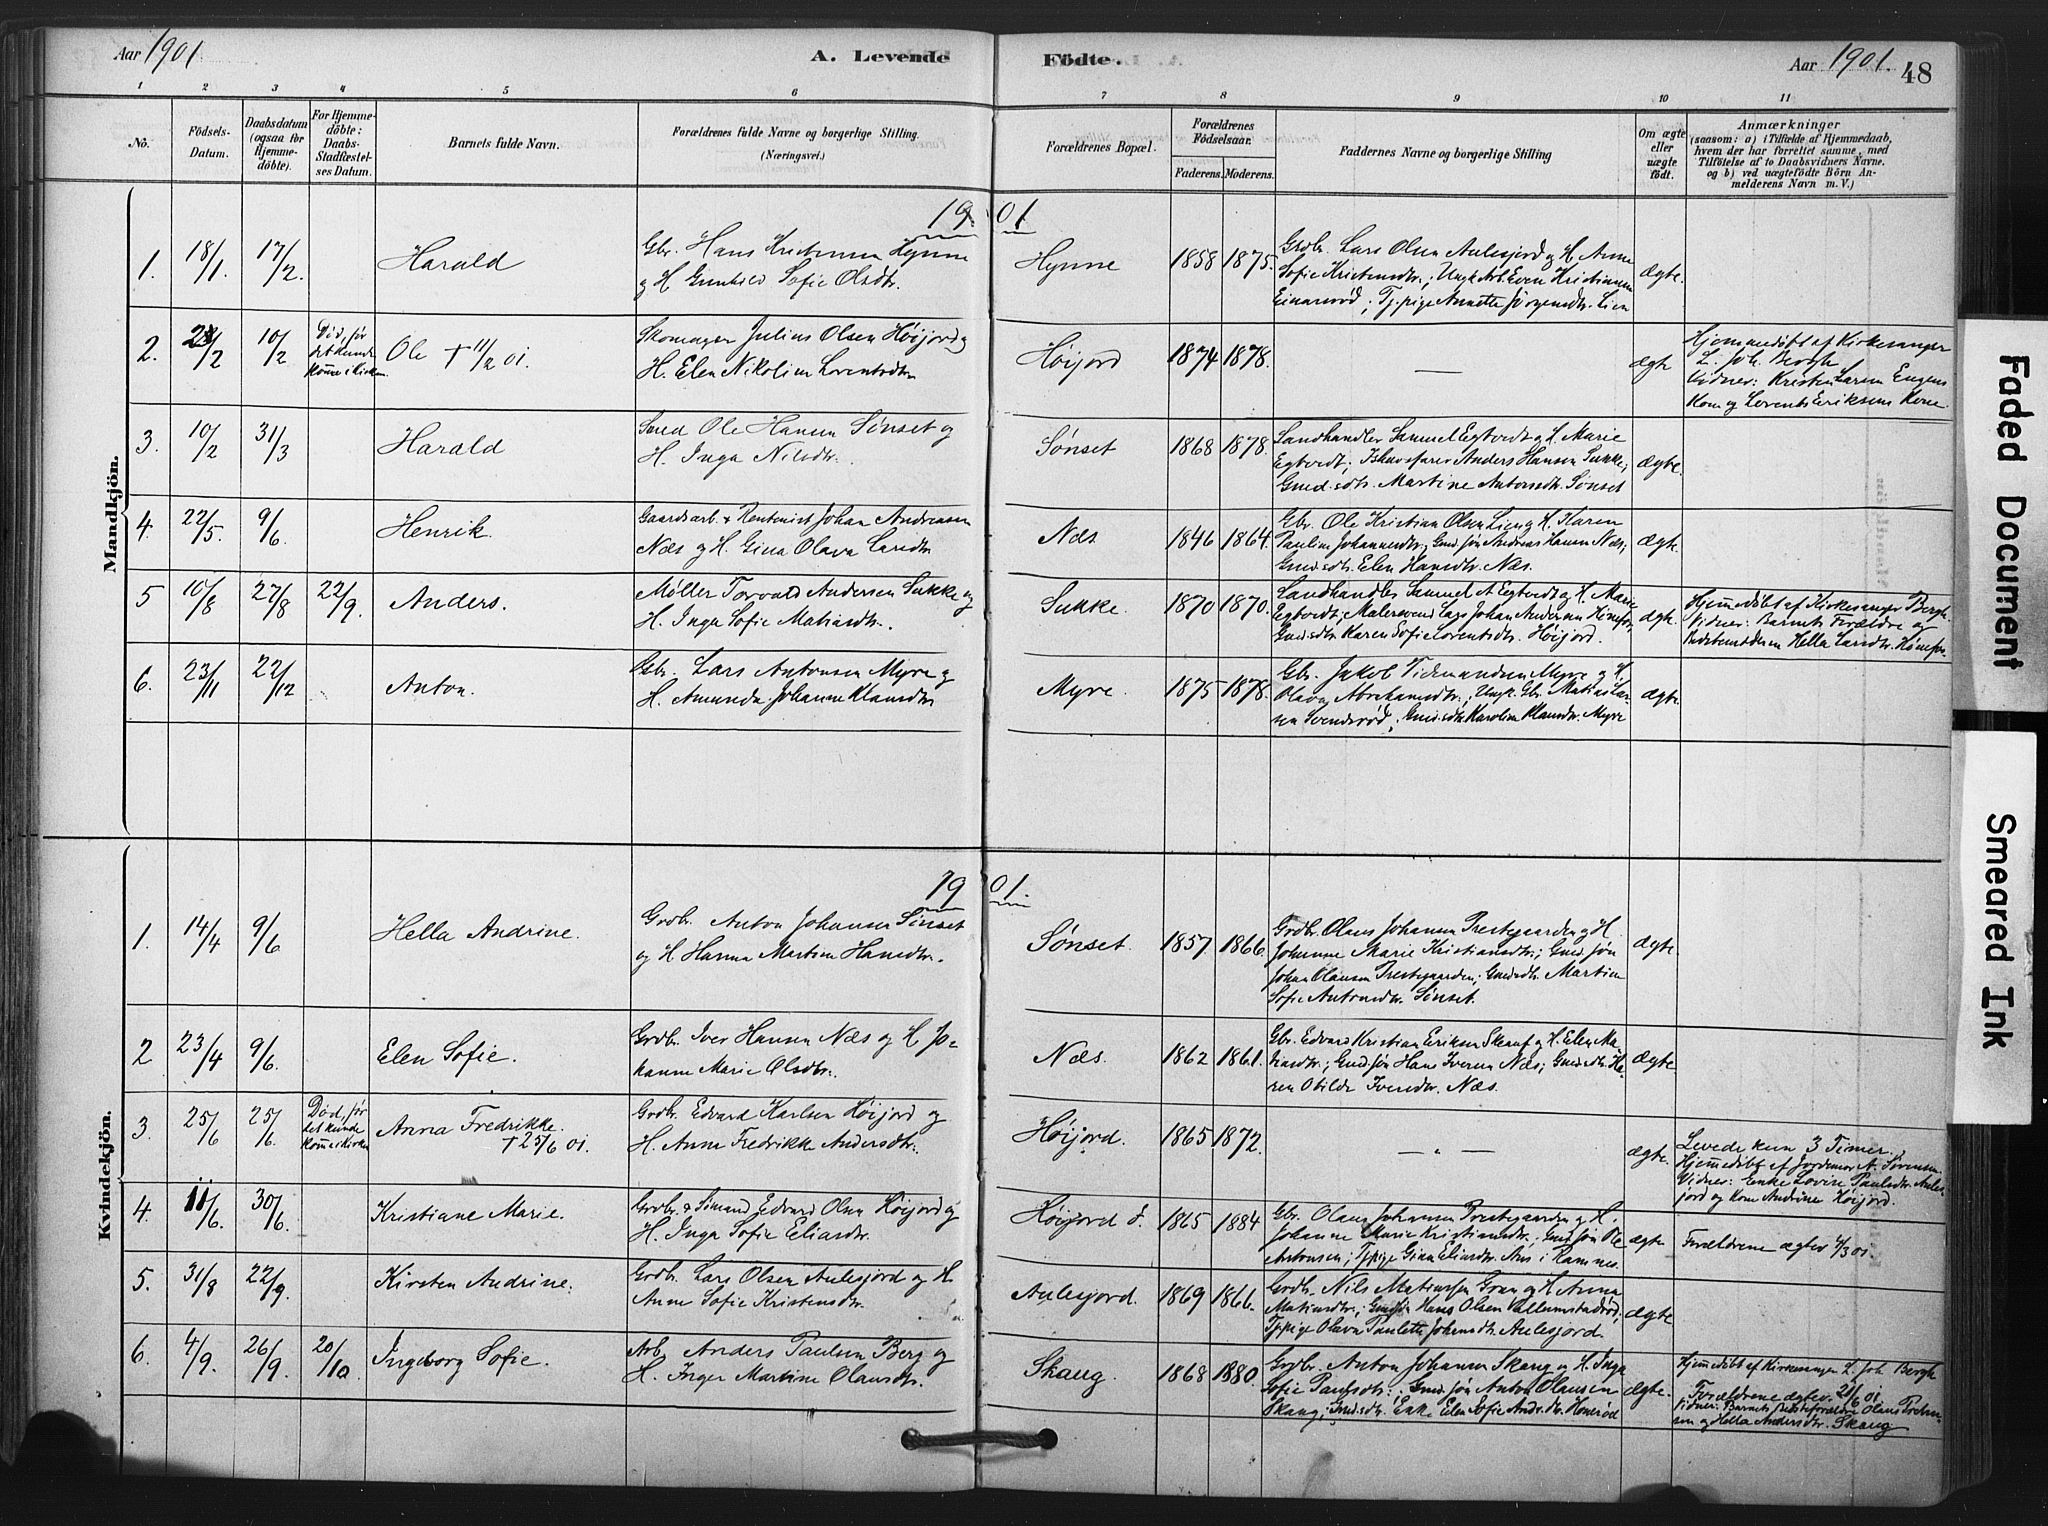 Aar 1901
A. Levende Födte.
Aar 1901.
48
1 2 3 4 5 6 7 8 9 10 11
No.
Födsels-
Datum.
Daabsdatum
(ogsaa for
Hjemme-
döbte).
For Hjemme-
döbte:
Daabs-
Stadfæstel-
ses Datum.
Barnets fulde Navn.
Forældrenes fulde Navne og borgerlige Stilling.
(Næringsvei.)
Forældrenes Bopæl.
Forældrenes
Födselsaar.
Faderens. Moderens.
Faddernes Navne og borgerlige Stilling
Om ægte
eller
uægte
födt.
Anmærkninger
(saasom: a) i Tilfælde af Hjemmedaab,
hvem der har forrettet samme, med
Tilföielse af to Daabsvidners Navne.
og b) ved uægtefödte Börn An-
melderens Navn m. V.)
Mandkjön.
1901
1. 18/1. 17/2. Harald
Gbr. Hans Kristensen Hynne
og H. Gunhild Sofie Olsdtr.
Hynne 1858 1875.
Grdbr. Lars Olsen Aulesjord og H. Anne
Sofie Kristensdtr.; Ungk. Arb. Even Kristiansen
Einarsrød; Tj.pige Annette Jörgensdtr. Lien
ægte.
2. 2/2 10/2
Död, för
det kunde
komme i Kirken
Ole † 11/2 01.
Skomager Julius Olsen Höijord og
H. Elen Nikoline Lorentsdtr.
Höijord 1874 1878. —
ægte
Hjemmedöbt af Kirkesanger
L. Joh. Bergh
Vidner: Kristen Larsen Engens
Kone og Lorents Eriksens Kone.
3. 10/2 31/3 Harald
Smed Ole Hansen Sønset og
H. Inga Nilsdtr.
Sønset 1868 1878.
Landhandler Samuel Egtvedt og H. Marie
Egtvedt; Anders Hansen Sukke;
Gmd.sdtr. Martine Antonsdtr. Sønset
ægte.
4. 22/5. 9/6 Henrik
Gaardsarb. & Johan Andreassen
Næs og H. Gina Olava Larsdtr.
Næs 1846 1864.
Gbr. Ole Kristian Olsen Lien og H. Karen
Pauline Johannesdtr; Gmd.sön Andreas Hansen Næs;
Gmd.sdtr. Elen Hansdtr. Næs.
ægte.
5 10/8 27/8 22/9. Anders.
Møller Torvald Andersen Sukke og
H. Inga Sofie Matiasdtr.
Sukke. 1870 1870.
Landhandler Samuel A Egtvedt og H. Marie
Egtvedt; Malersvend Lars Johan Andersen Hönefos;
Gmd.sdtr. Karen Sofie Lorentsdtr. Höijord.
ægte.
Hjemmedöbt af Kirkesanger Bergh.
Vidner: Barnets Forældre og
Bedstemoderen Hella Larsdtr. Hönefos.
6. 23/11 22/12 Anton.
Gbr. Lars Antonsen Myre og
H. Amunda Johanne Klausdtr.
Myre. 1875 1878.
Gbr. Jakob Tidemandsen Myre og H.
Olava Abrahamsdtr.; Ungk. Gbr. Matias Lar-
sen Svendsrød; Gmd.sdtr. Karoline Klausdtr. Myre
ægte.
Kvindekjön.
1901.
1. 14/4 9/6 Hella Andrine.
Grdbr. Anton Johansen Sønset
og H. Hanna Martine Hansdtr.
Sønset. 1857. 1866.
Grdbr. Olaus Johansen Prestegaarden og H.
Johanne Marie Kristiansdtr.; Gmd.sön
Johan Olausen Prestegaarden; Gmd.sdtr. Martine
Sofie Antonsdtr. Sønset.
ægte.
2 23/4 9/6. Elen Sofie.
Grdbr. Iver Hansen Næs og H. Jo-
hanne Marie Olsdtr.
Næs. 1862 1861.
Gbr. Edvard Kristian Eriksen Skarsf og H. Elen Ma-
tiasdtr.; Gmd.sön Hans Iversen Næs; Gmd.sdtr. Ka-
ren Otilde Iversdtr. Næs.
ægte.
3. 25/6 25/6.
Död, för
det kunde
komme i Kirken
Anna Fredrikke.
† 25/6 01.
Grdbr. Edvard Karlsen Höijord og
H. Anne Fredrikke Andersdtr.
Höijord. 1865 1872. — " —
ægte.
Levede kun 3 Timer.
Hjemmedöbt af Jordemor A. Sørensen
Vidner: Enke Lovise Paulsdtr. Aules-
jord og Kone Andrine Höijord.
4. 11/6. 30/6. Kristiane Marie.
Grdbr. & Sömand Edvard Olsen Höijord og
H. Inga Sofie Eliasdtr.
Höijord 1865 1884
Gbr. Olaus Johansen Prestegaarden og H.
Johanne Marie Kristiansdtr.; Gmd.sön Ole
Antonsen; Tj.pige Gina Eliasdtr. Aas i Ramnes.
ægte
Forældrene ægtev. 4/3 01.
5. 31/8 22/9. Kirsten Andrine.
Grdbr. Lars Olsen Aulesjord og H.
Anne Sofie Kristensdtr.
Aulesjord. 1869 1866.
Grdbr. Nils Matiassen Gran og H. Anna
Matiasdtr.; Gmdsön Hans Olsen Vallumstadrød;
Tj.pige Olava Paulette Johansdtr. Aulesjord.
ægte
6. 4/9. 26/9. 20/10 Ingeborg Sofie.
Arb. Anders Paulsen Berg og
H. Inger Martine Olausdtr.
Skaug. 1868 1880.
Grdbr. Anton Johansen Skaug og H. Inga
Sofie Paulsdtr.; Gmd.sön Anton Olausen
Skaug; Gmd.sdtr. Enke Elen Sofie Andr.dtr. Honerød
ægte.
Hjemmedöbt af Kirkesanger L. Joh. Bergh
Forældrene ægtev. 21/6 01
Vidner: Barnets Bedsteforældre Olaus
og Hella Andersdtr. Skaug
Faded Document
Smeared Ink